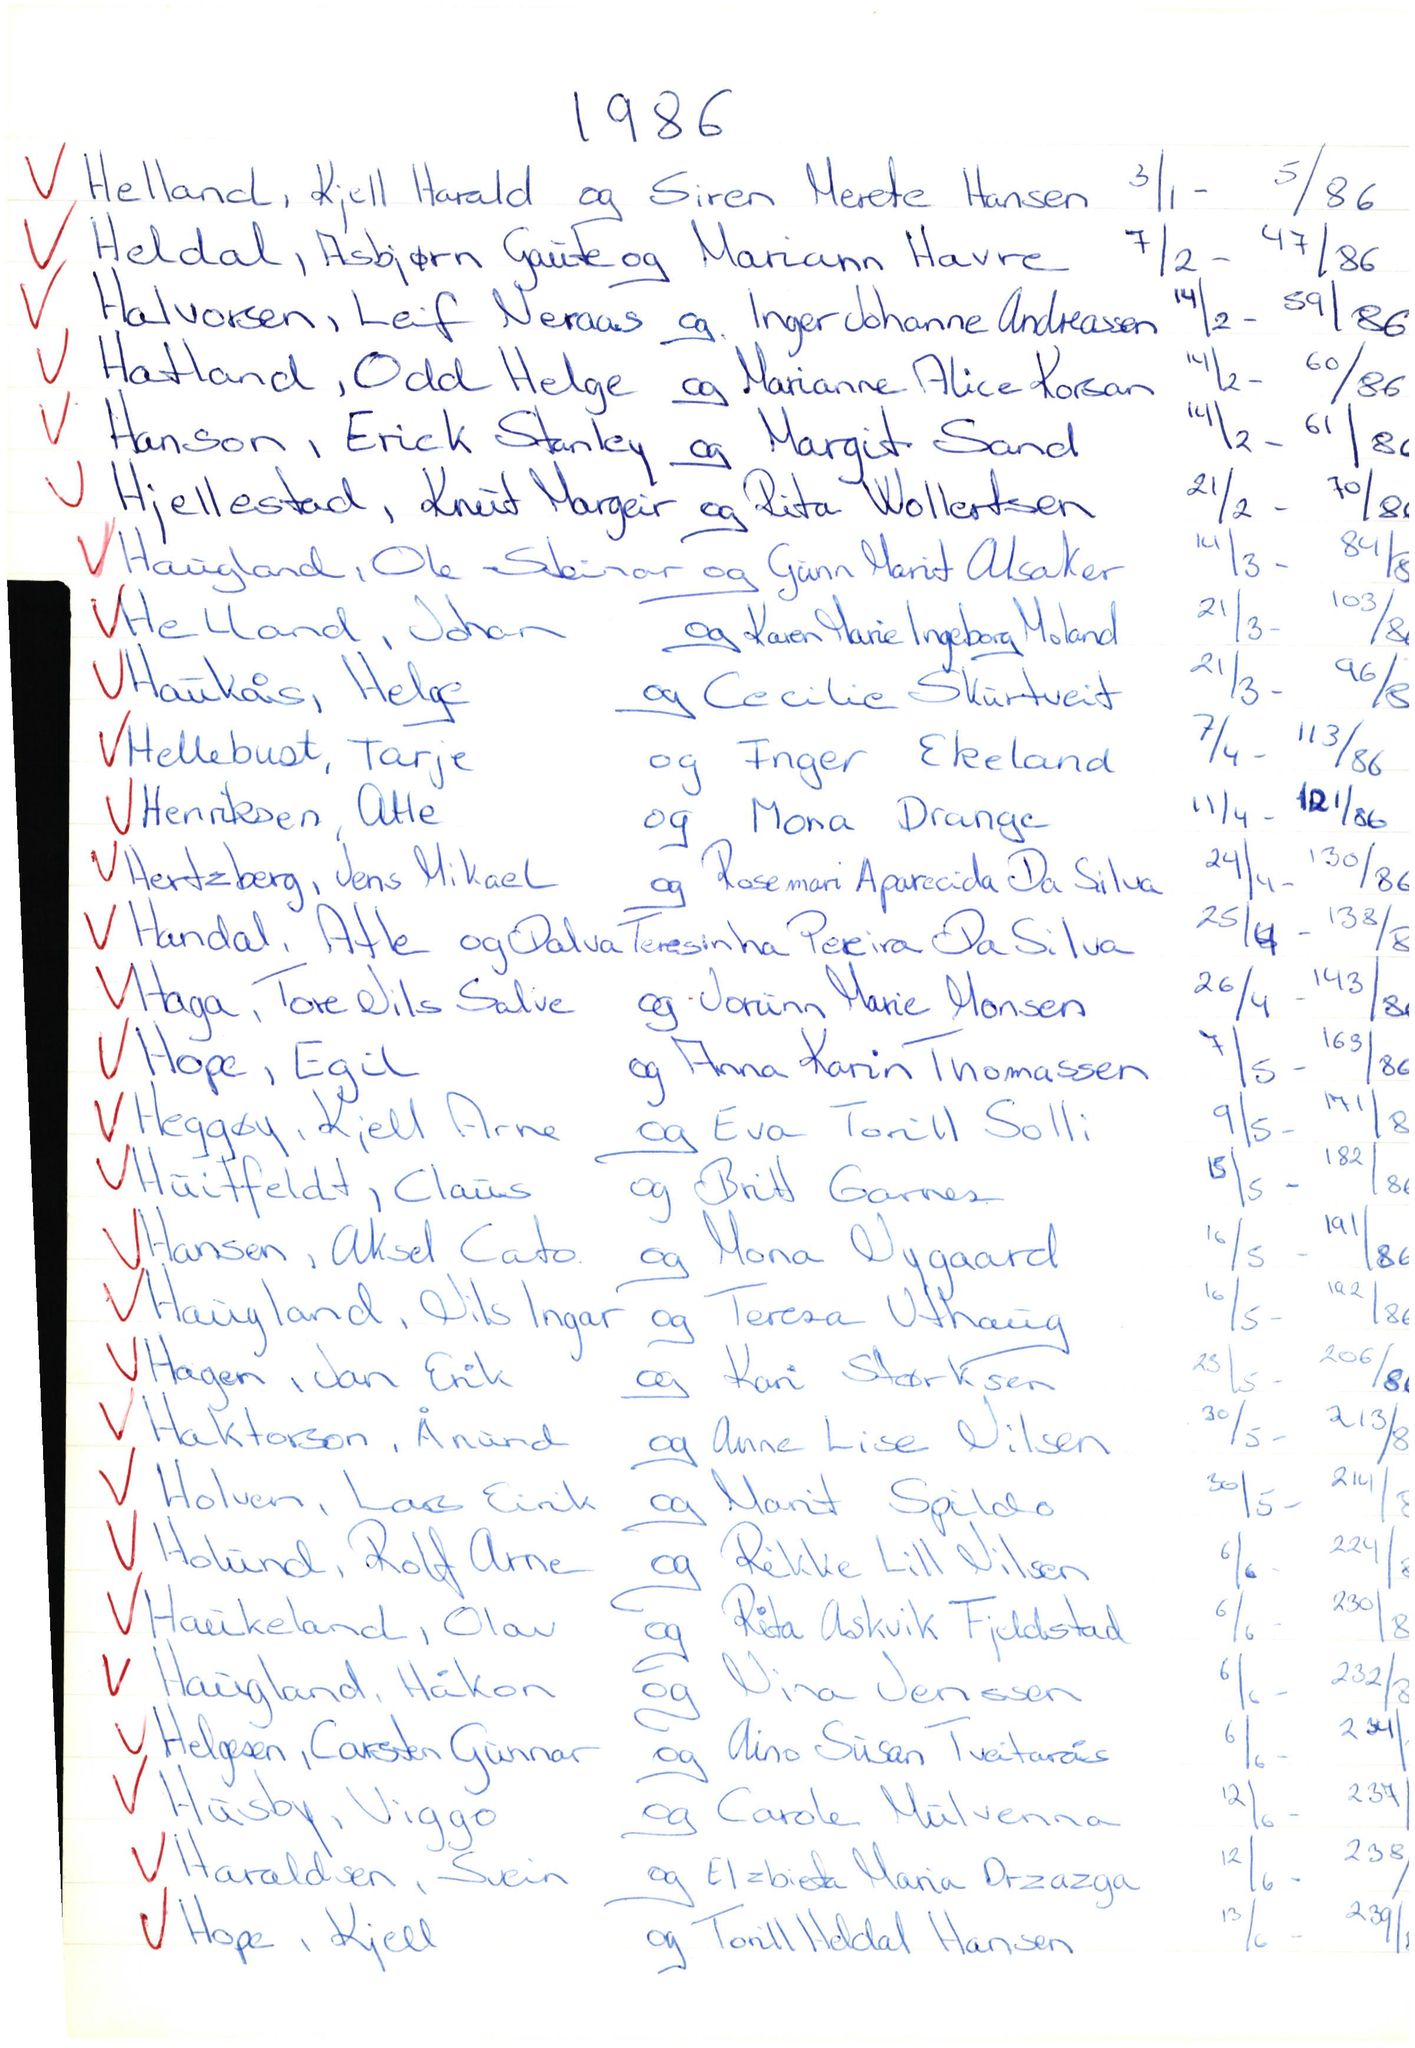 1986
Helland, Kjell Harald og Siren Merete Hansen 3/1 - 5/86
Heldal, Asbjørn Gaute og Mariann Havre 7/2 - 47/86
Halvorsen, Leif Neraas og Inger Johanne Andreassen 14/2 - 59/86
Hatland, Odd Helge og Marianne Alice Korsan 14/2 - 60/86
Hanson, Erick Stanley og Margit Sand 14/2 - 61/86
Hjellestad, Knut Margeir og Rita Wollertsen 21/2 - 70/86
Haugland, Ole Steinar og Gunn Marit Alsaker 14/3 - 84/8
Helland, Johan og Karen Marie Ingeborg Moland 21/3 - 103/86
Haukås, Helge og Cecilie Skurtveit 21/3 - 96/8
Hellebust, Tarje og Inger Ekeland 7/4 - 113/86
Henriksen, Atle og Mona Drange 11/4 - 121/86
Hertzberg, Jens Mikael og Rosemari Aparecida Da Silva 24/4 - 130/86
Handal, Atle og Dalva Teresinha Pereira Da Silva 25/4 - 138/8
Haga, Tore Nils Salve og Jorunn Marie Monsen 26/4 - 143/86
Hope, Egil og Anna Karin Thomassen 7/5 - 163/86
Heggøy, Kjell Arne og Eva Torill Solli 9/5 - 171/8
Huitfeldt, Claus og Britt Garnes 15/5 - 182/86
Hansen, Aksel Cato og Mona Nygaard 16/5 - 191/86
Haugland, Nils Ingar og Teresa Uthaug 16/5 - 192/86
Hagen, Jan Erik og Kari Størksen 23/5 - 206/86
Haktorson, Ånund og Anne Lise Nilsen 30/5 - 213/8
Holven, Lars Eirik og Marit Spildo 30/5 - 214/8
Holund, Rolf Arne og Rikke Lill Nilsen 6/6 - 224/8
Haukeland, Olav og Rita Askvik Fjeldstad 6/6 - 230/8
Haugland, Håkon og Nina Jenssen 6/6 - 232/8
Helgesen, Carsten Gunnar og Aino Susan Tveitarås 6/6 - 234/
Husby, Viggo og Carole Mulvenna 12/6 - 237/
Haraldsen, Svein og Elzbieta Maria Drzazga 12/6 - 238/
Hope, Kjell og Torill Heldal Hansen 13/6 - 239/8